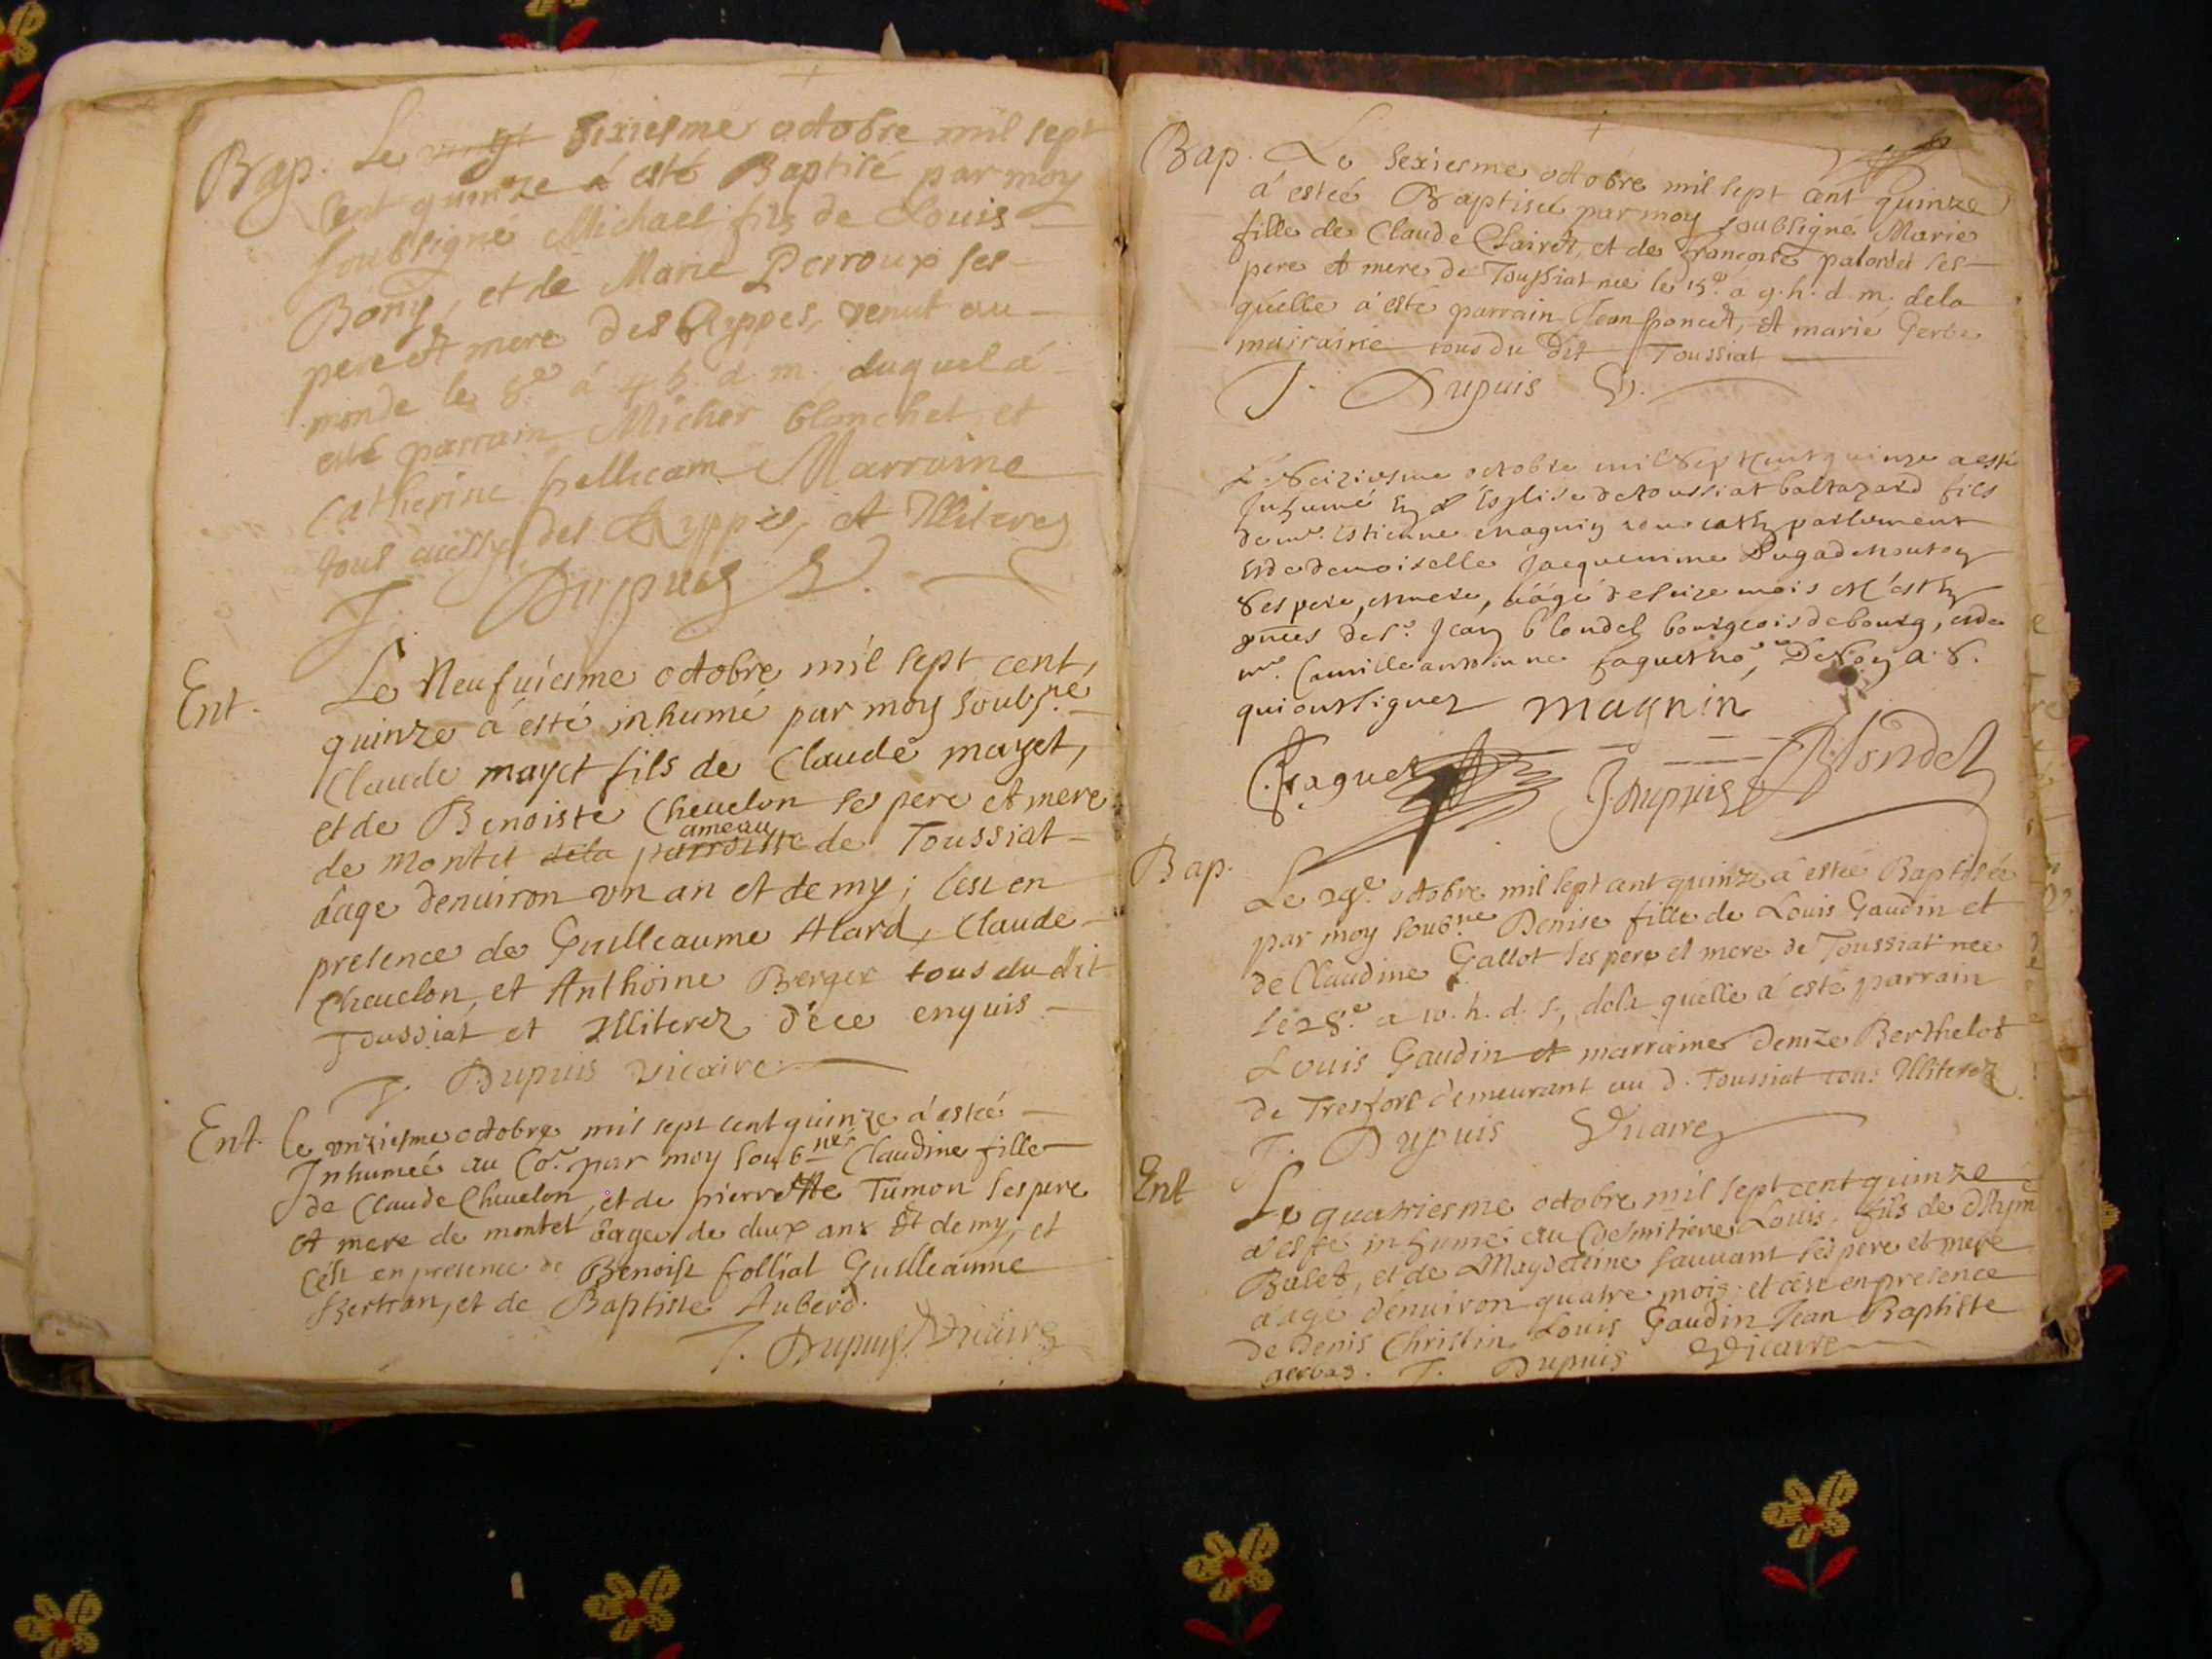 Bap. Le vingt sixiesme octobre mil sept
cent quinze à esté Baptisé par moy
soubsigné Michael fils de Louis
Bony, et de Marie Perroux ses
pere et mere des Rippes, venut au
monde le 8.e à 4 h. d. m. duquel á
esté parrain Micher blanchet, et
Catherine pellicam Marraine
tous aussy des Rippes, et Illiterez
J. Dupuis
Ent. Le Neufuiesme octobre mil sept cent,
quinze à esté inhumé par moy soubs.né
Claude mayet fils de Claude mayet,
et de Benoiste Cheuelon ses pere et mere
ameau
de montet dela parroisse de Toussiat
áage denuiron vn an et demy; cest en
presence de Guilleaume Alard, Claude
Cheuelon, et Anthoine Berger tous du dit
Toussiat et Illiterez d'ece enquis
J. Dupuis vicaire
Ent. le vnziesme octobre mil sept cent quinze à estée
Inhumeé au Co.r par moy soub.né Claudine fille
de Claude Cheuelon, et de pierrette Tumon ses pere
et mere de montet áagée de deux ans et demy, et
cést en presence de Benoist folliat Guilleaume
Bertran, et de Baptiste Auberd.
J. Dupuis Vicaire
Bap. Le sexiesme octobre mil sept cent quinze
á estée Baptiseé par moy soubsigné Marie
fille de Claude Clairet, et de françoise palordet ses
pere et mere de Toussiat neé le 15.e á 9. h. d. m. dela
quelle à esté parrain Jean poncet, et marie Gerbe
mairaine tous du dit Toussiat
J. Dupuis
Le Seiziesme octobre mil Sept Cent quinze a esté
Inhumé En l'Esglise de Toussiat baltazard fils
de mr. Estienne magnin aduocat En parlement
et de demoiselle Jacquemine
Ses pere, et mere, áagé de seize mois et C'est En
pnces de sr. Jean blondel bourgeois de bourg, et de
mr. Camille antoinne faguet
qui ont signez magnin
C. faguet J. Dupuis Blondel
Bap. Le 29.e octobre mil sept cent quinze á estée Baptisée
par moy soub.né Denise fille de Louis Gaudin et
de Claudine Gallot ses pere et mere de Toussiat neé
le 28.e a 10. h. d. s., dela quelle a esté parrain
Louis Gaudin et marraine denize Berthelot
de Tresfort demeurant au d. Toussiat tous Illiterez
J. Dupuis Vicaire
Ent Le quatriesme octobre mil sept cent quinze
a esté inhumé au Coesmitiere Louis, fils de
Bulet, et de Maydeleine sauuant ses pere et mere
áagé denuiron quatre mois et cést en presence
de Denis Christin, Louis Gaudin Jean Baptiste
J. Dupuis Vicaire